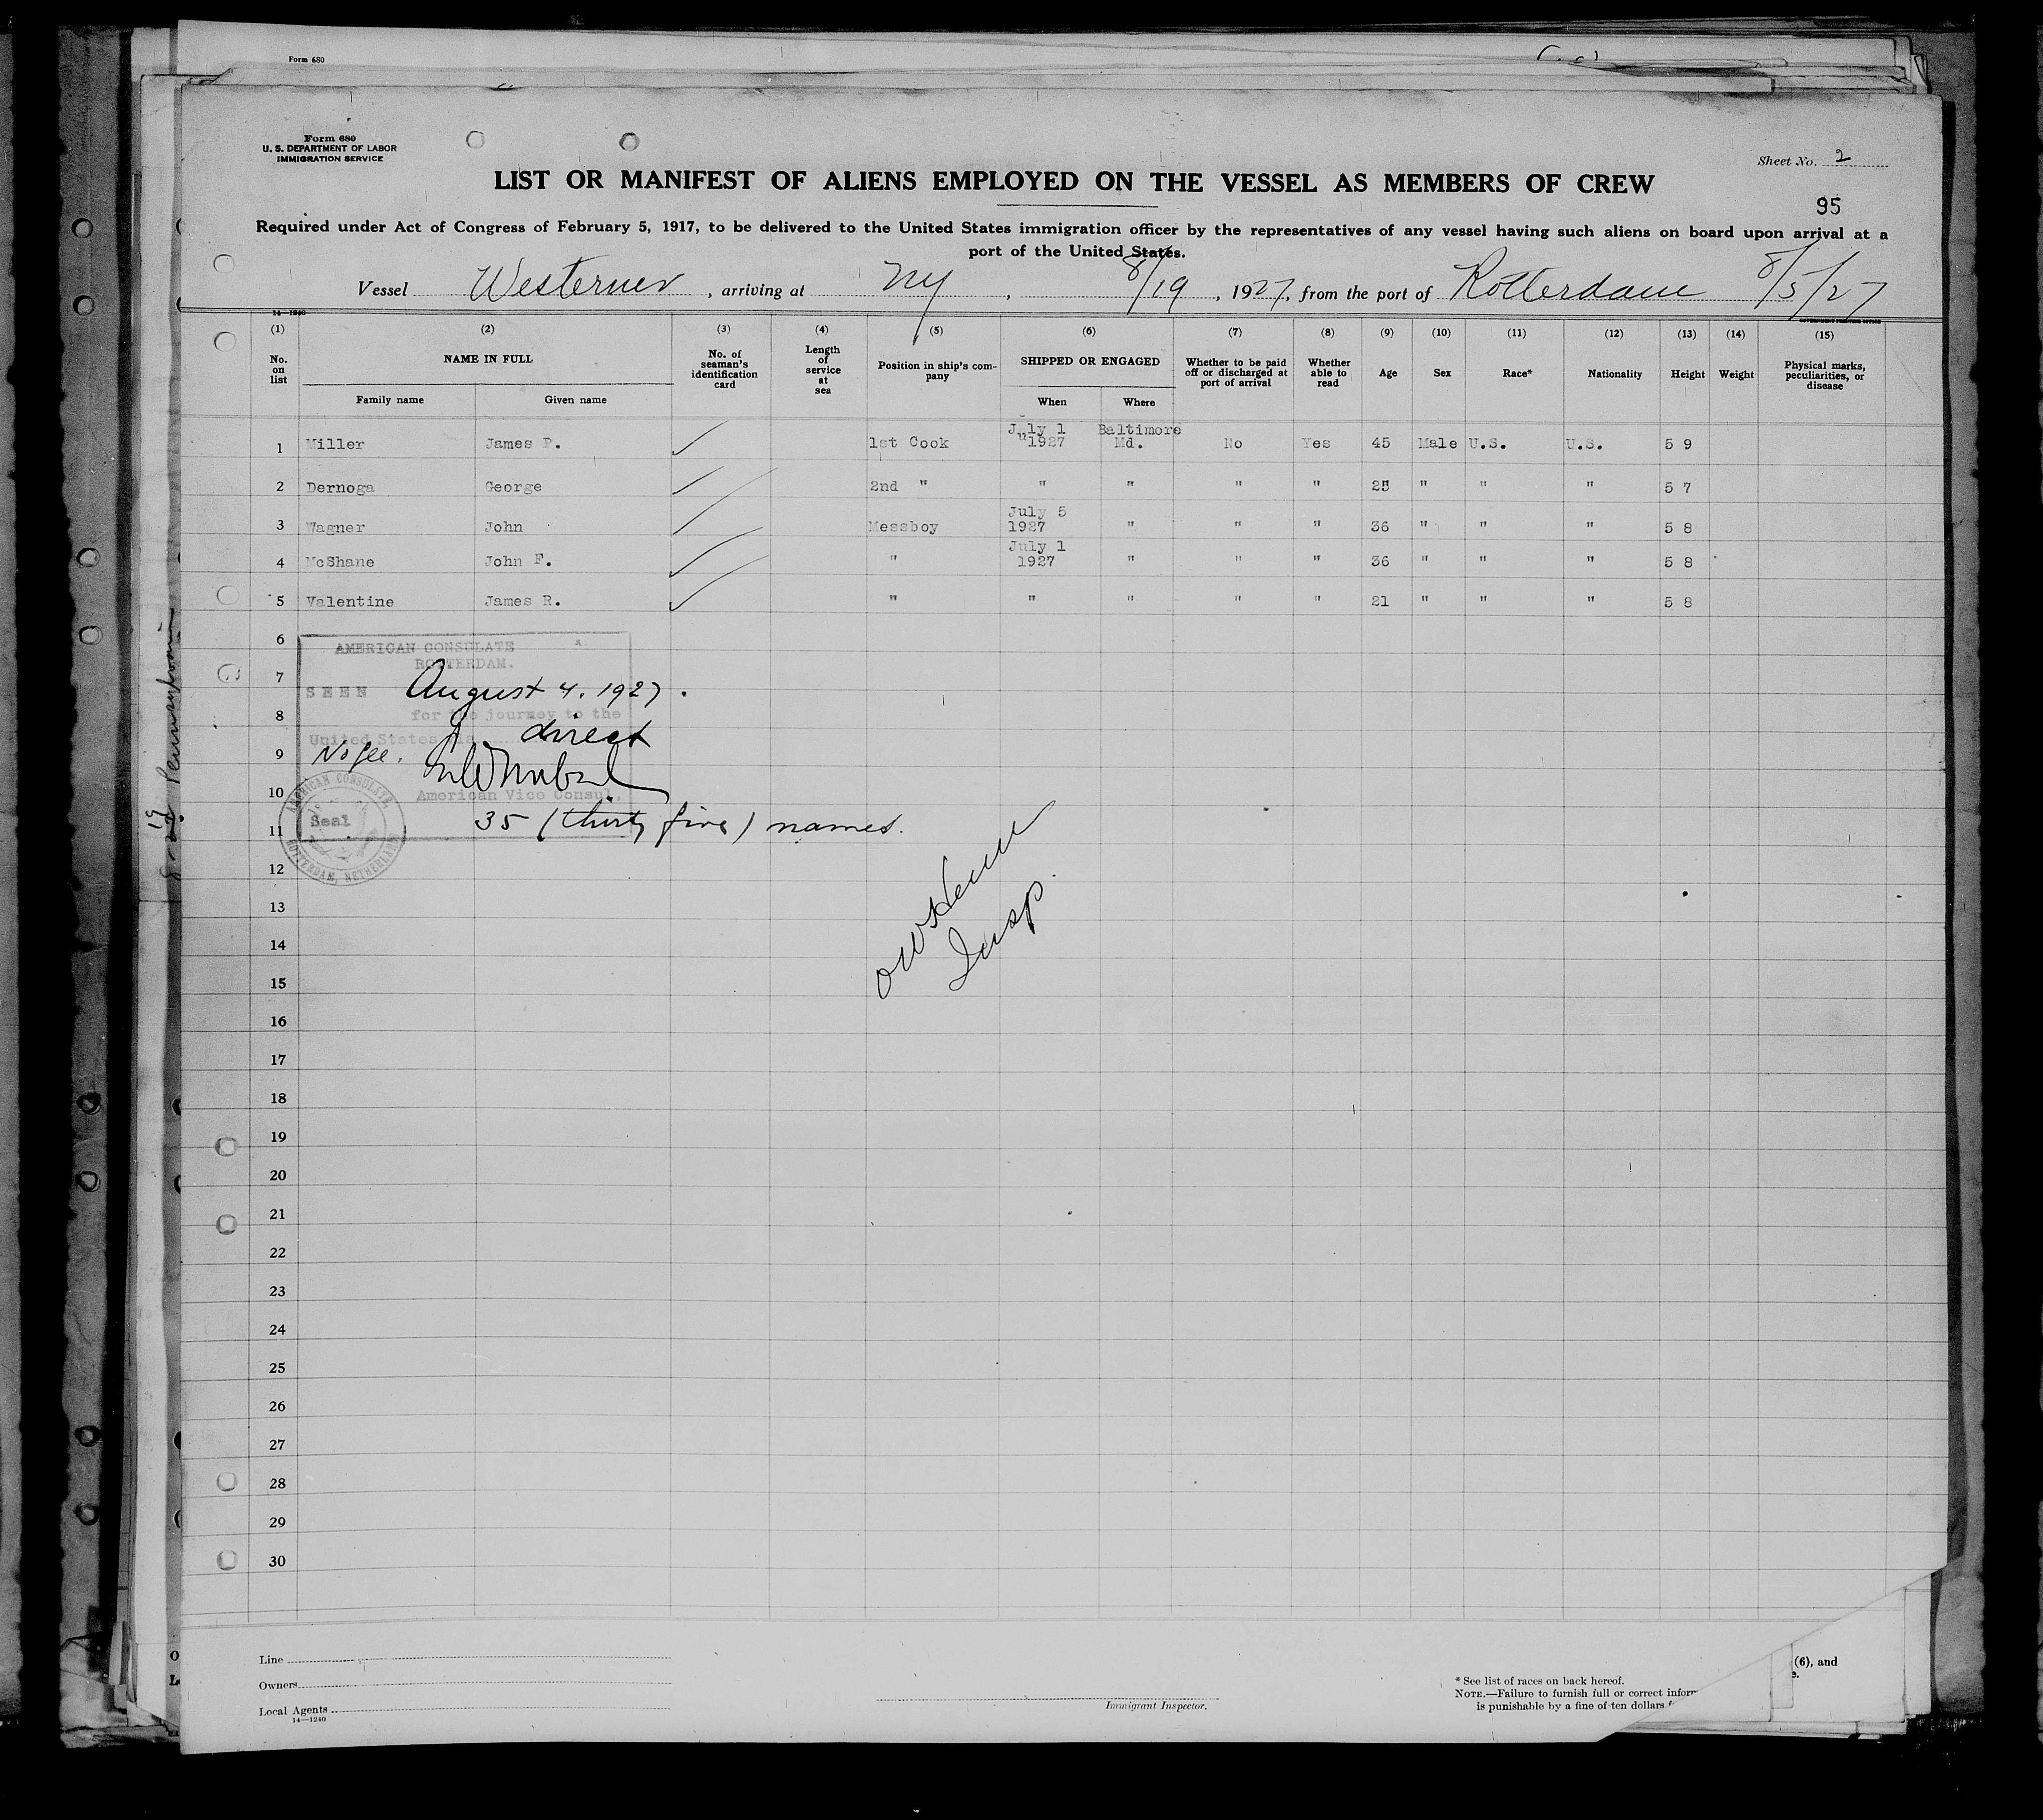 Form 680
Form 680
U. S. DEPARTMENT OF LABOR
IMMIGRATION SERVICE
Sheet No. 2
LIST OR MANIFEST OF ALIENS EMPLOYED ON THE VESSEL AS MEMBERS OF CREW
95
Required under Act of Congress of February 5, 1917, to be delivered to the United States immigration officer by the representatives of any vessel having such aliens on board upon arrival at a
port of the United States.
Vessel Westerner, arriving at NY, 8/19, 1927, from the port of Rotterdam 8/5/27
14—1240
GOVERNMENT PRINTING OFFICE
(1) (2) (3) (4) (5) (6) (7) (8) (9) (10) (11) (12) (13) (14) (15)
No. on list NAME IN FULL No. of seaman's identification card Length of service at sea Position in ship's company SHIPPED OR ENGAGED Whether to be paid off or discharged at port of arrival Whether able to read Age Sex Race* Nationality Height Weight Physical marks, peculiarities, or disease
Family name Given name When Where
1 Miller James P. 1st Cook July 1 1927 Baltimore Md. No Yes 45 Male U.S. U.S. 5 9
2 Dernoga George 2nd " " " " " 25 " " " 5 7
3 Wagner John Messboy July 5 1927 " " " 36 " " " 5 8
4 McShane John F. " July 1 1927 " " " 36 " " " 5 8
5 Valentine James R. " " " " " 21 " " " 5 8
6
AMERICAN CONSULATE
ROTTERDAM.
7
SEEN August 4, 1927.
8
for the journey to the
United States via direct
9
No fee.
10
American Vice Consul,
AMERICAN CONSULATE,
ROTTERDAM, NETHERLANDS
Seal
11
35 (thirty five) names.
12
13
14
Insp.
15
16
17
18
19
20
21
22
23
24
25
26
27
28
29
30
Line
Owners
Local Agents
14—1240
Immigrant Inspector.
* See list of races on back hereof.
NOTE.—Failure to furnish full or correct inform
is punishable by a fine of ten dollars
(6), and
e.